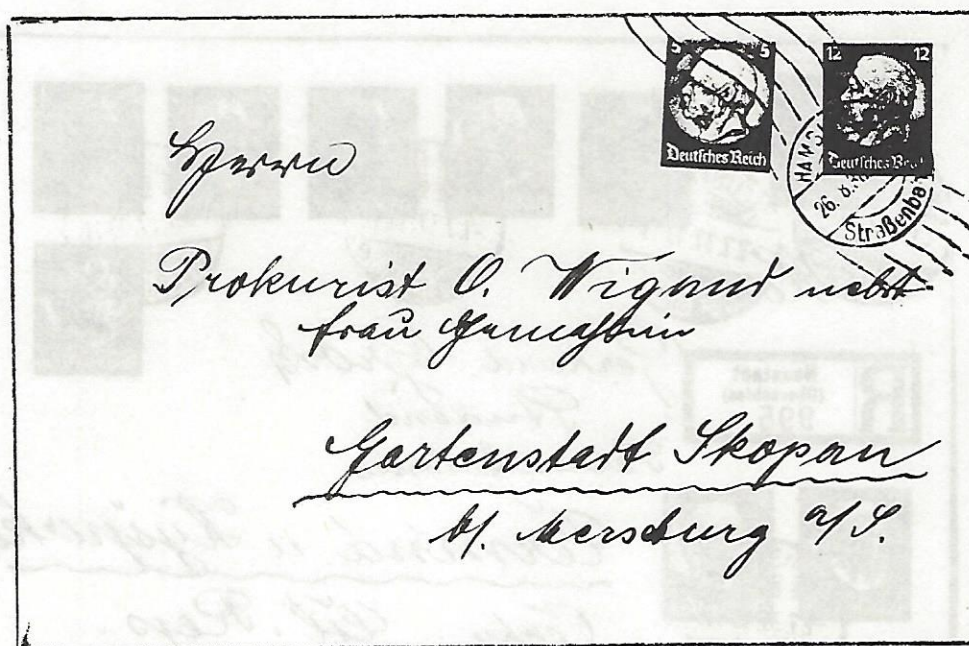 5 5
Deutsches Reich
12 12
Deutsches Re
HAMB
26. 8.3
Straßenba
Herrn
Prokurist O. Wigand nebst
Frau Gemahlin
Gartenstadt Skopau
b/. Merseburg a/S.
R
Neustadt
995